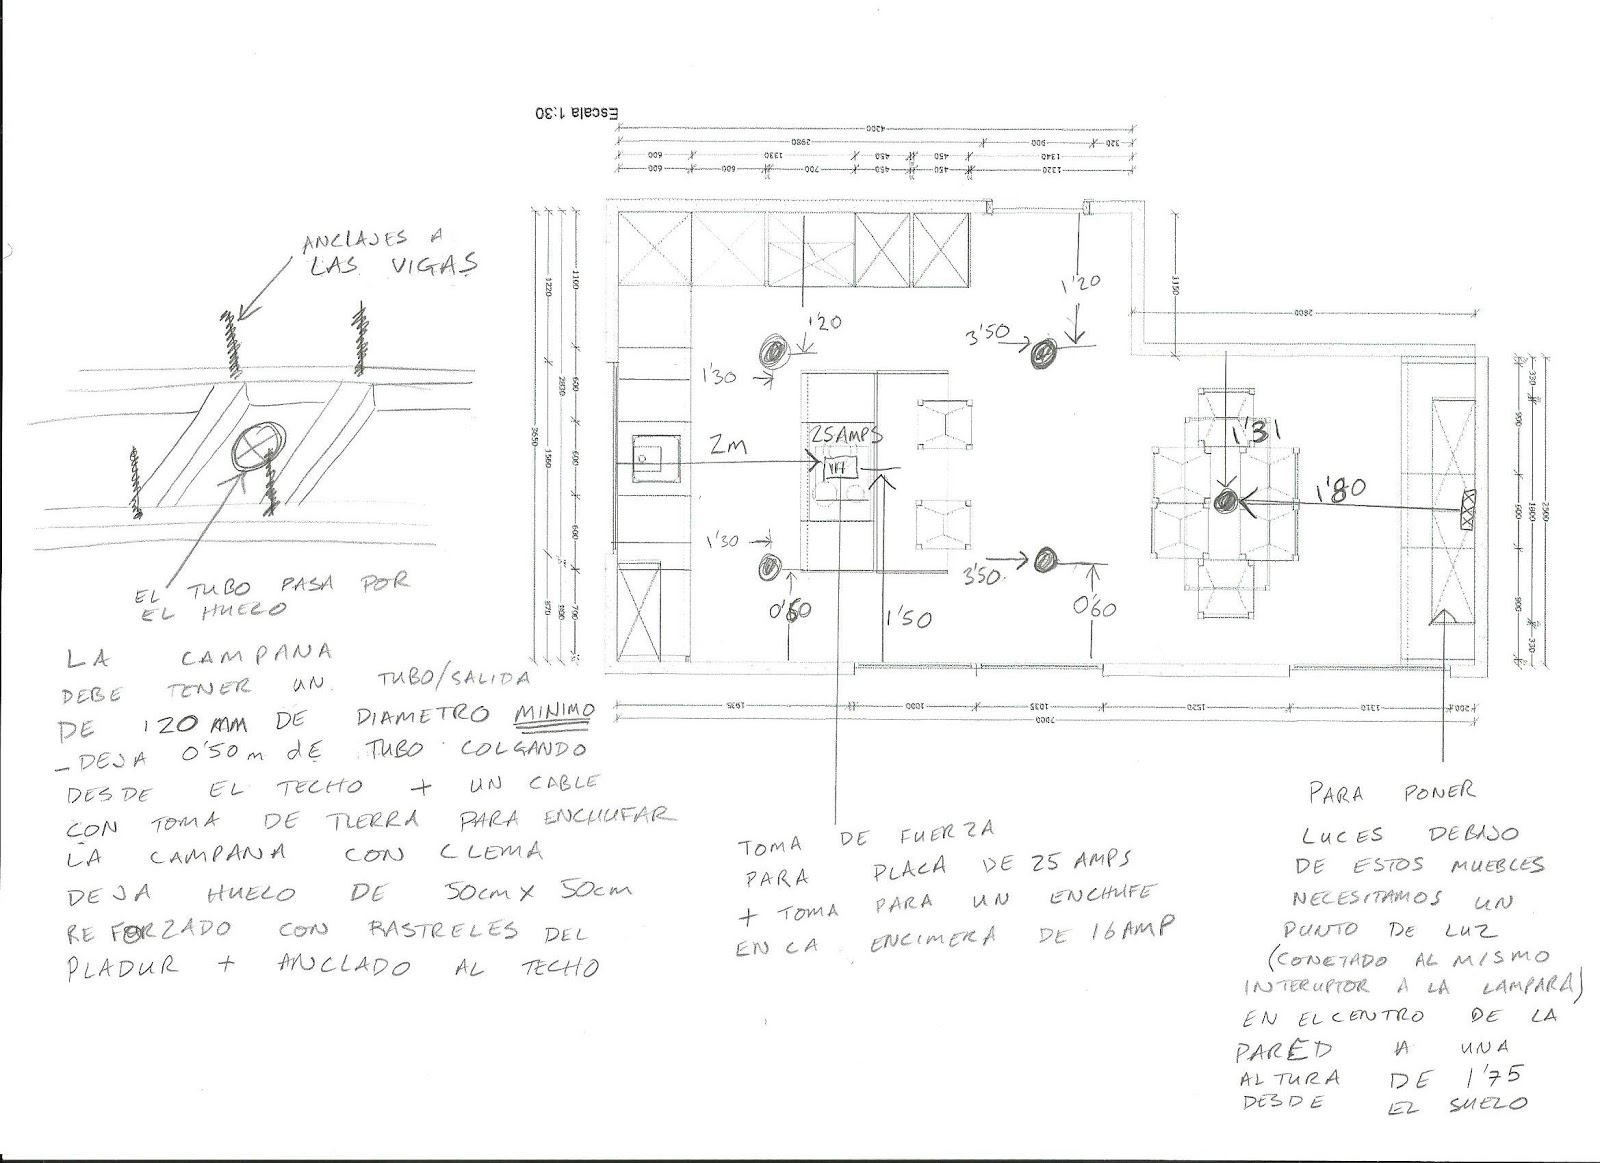 Escala 1:30
4200
2980
900
320
600
1330
450
450
1340
600
600
700
450
450
1320
ANCLAJES A
LAS VIGAS
EL TUBO PASA POR
EL HUECO
3650
1220
1560
870
2830
1100
600
600
600
700
1150
2800
1'20
1'20
3'50
1'30
25 AMPS
2m
1'31
1'80
1'30
3'50
0'60
1'50
0'60
330
900
600
900
330
1800
2500
1935
1000
1035
1520
1310
200
7000
LA CAMPANA
DEBE TENER UN TUBO/SALIDA
DE 120 MM DE DIAMETRO MINIMO
- DEJA 0'50 m dE TUBO COLGANDO
DESDE EL TECHO + UN CABLE
CON TOMA DE TIERRA PARA ENCHUFAR
LA CAMPANA CON CLEMA
DEJA HUECO DE 50cm x 50cm
REFORZADO CON RASTRELES DEL
PLADUR + ANCLADO AL TECHO
TOMA DE FUERZA
PARA PLACA DE 25 AMPS
+ TOMA PARA UN ENCHUFE
EN LA ENCIMERA DE 16 AMP
PARA PONER
LUCES DEBAJO
DE ESTOS MUEBLES
NECESITAMOS UN
PUNTO DE LUZ
(CONETADO AL MISMO
INTERUPTOR A LA LAMPARA)
EN EL CENTRO DE LA
PARED A UNA
ALTURA DE 1'75
DESDE EL SUELO